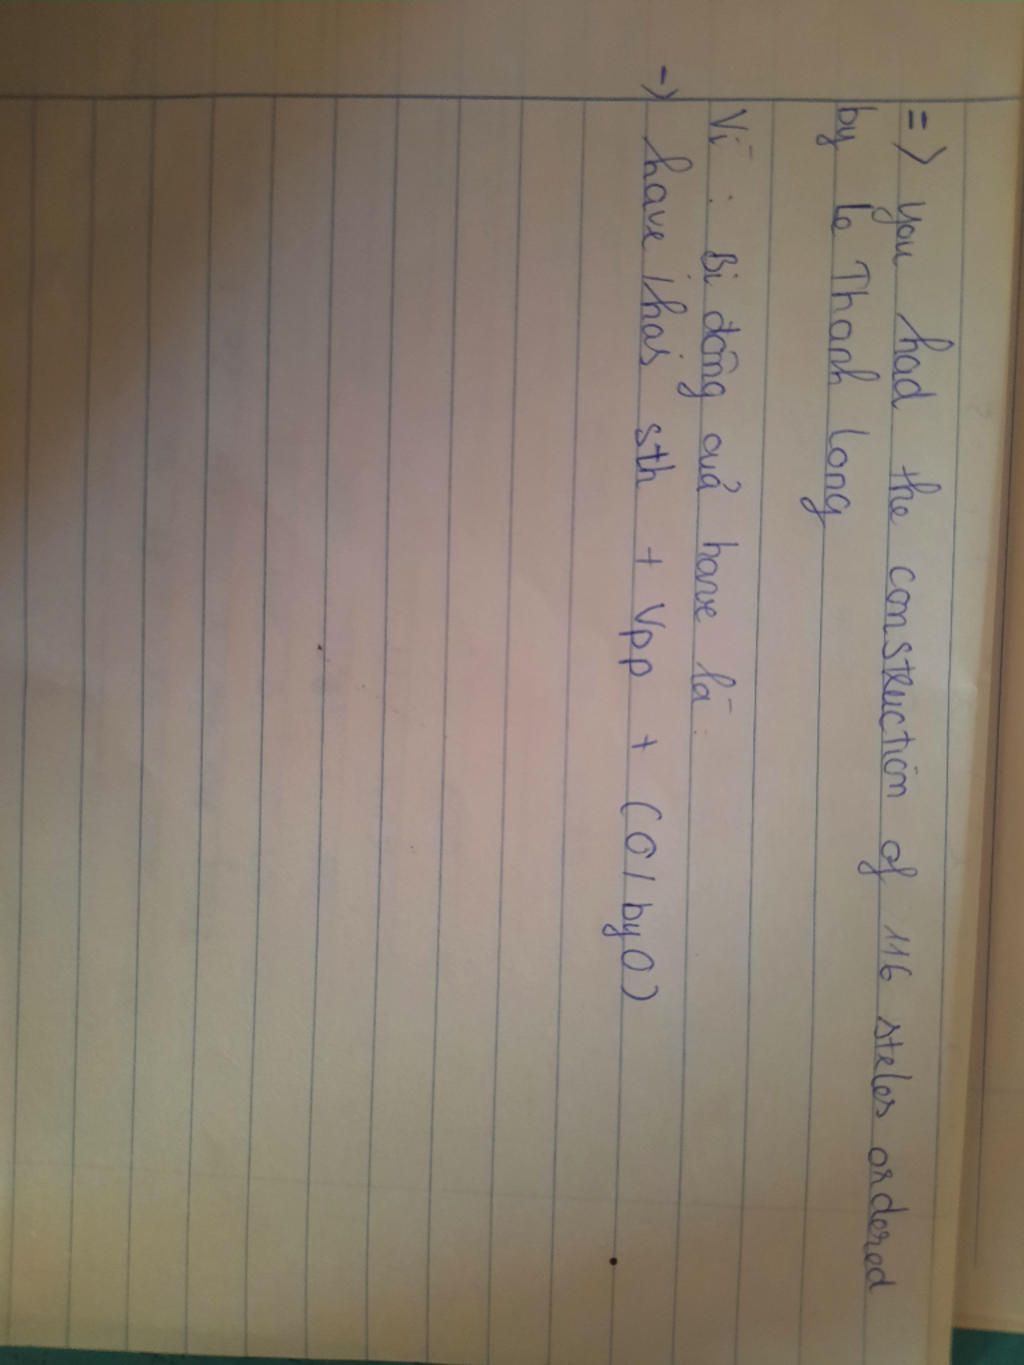 => you had the construction of 116 steles ordered
by lê Thanh long
Vì : Bị động quá have là :
-> have / has sth + Vpp + (O / by O)